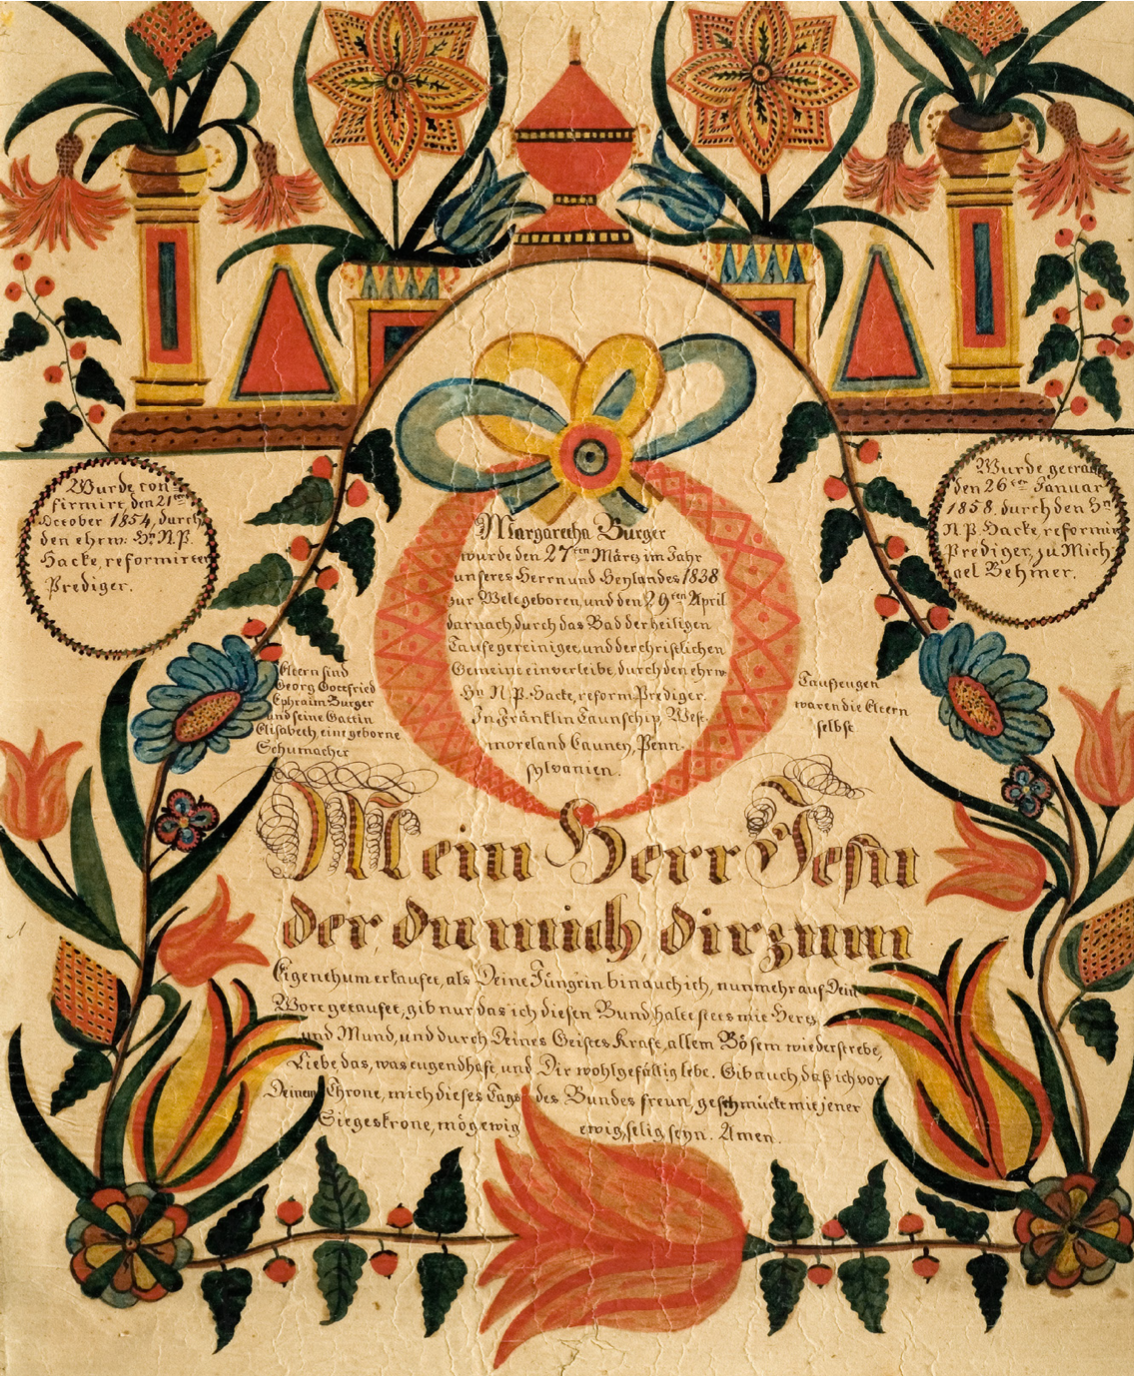 Wurde con=
firmirt, den 21ten
October 1854, durch
den ehrw. Hn N.P.
Hacke, reformirten
Prediger.
Wurde getraut
den 26ten Januar
1858, durch den Hn
N.P. Hacke, reformirten
Prediger, zu Mich=
ael Behmer.
Margaretha Burger
wurde den 27ten März im Jahr
unseres Herrn und Heylandes 1838
zur Welt geboren, und den 29ten April
darnach, durch das Bad der heiligen
Taufe gereiniget, und der christlichen
Gemeine einverleibt, durch den ehrw.
Hn N.P. Hacke, reform. Prediger.
In Fränklin Taunschip, West=
moreland Caunty, Penn=
sylvanien.
Eltern sind
Georg Gottfried
Ephraim Burger
und seine Gattin
Elisabeth, eine geborne
Schumacher
Taufzeugen
waren die Eltern
selbst.
Mein Herr Jesu
der du mich, dir zum
Eigenthum erkaufet, als Deine Jüngrin bin auch ich, nunmehr auf Dein
Wort getaufet, gib nur das ich diesen Bund halte stets mit Hertz
und Mund, und durch Deines Geistes Kraft, allem Bösem wiederstrebe,
Liebe das, was tugendhaft, und Dir wohlgefällig lebe. Gib auch daß ich vor
Deinem Throne, mich dieses Tags des Bundes freun, geschmückt mit jener
Siegeskrone, mög ewig ewig, selig seyn. Amen.